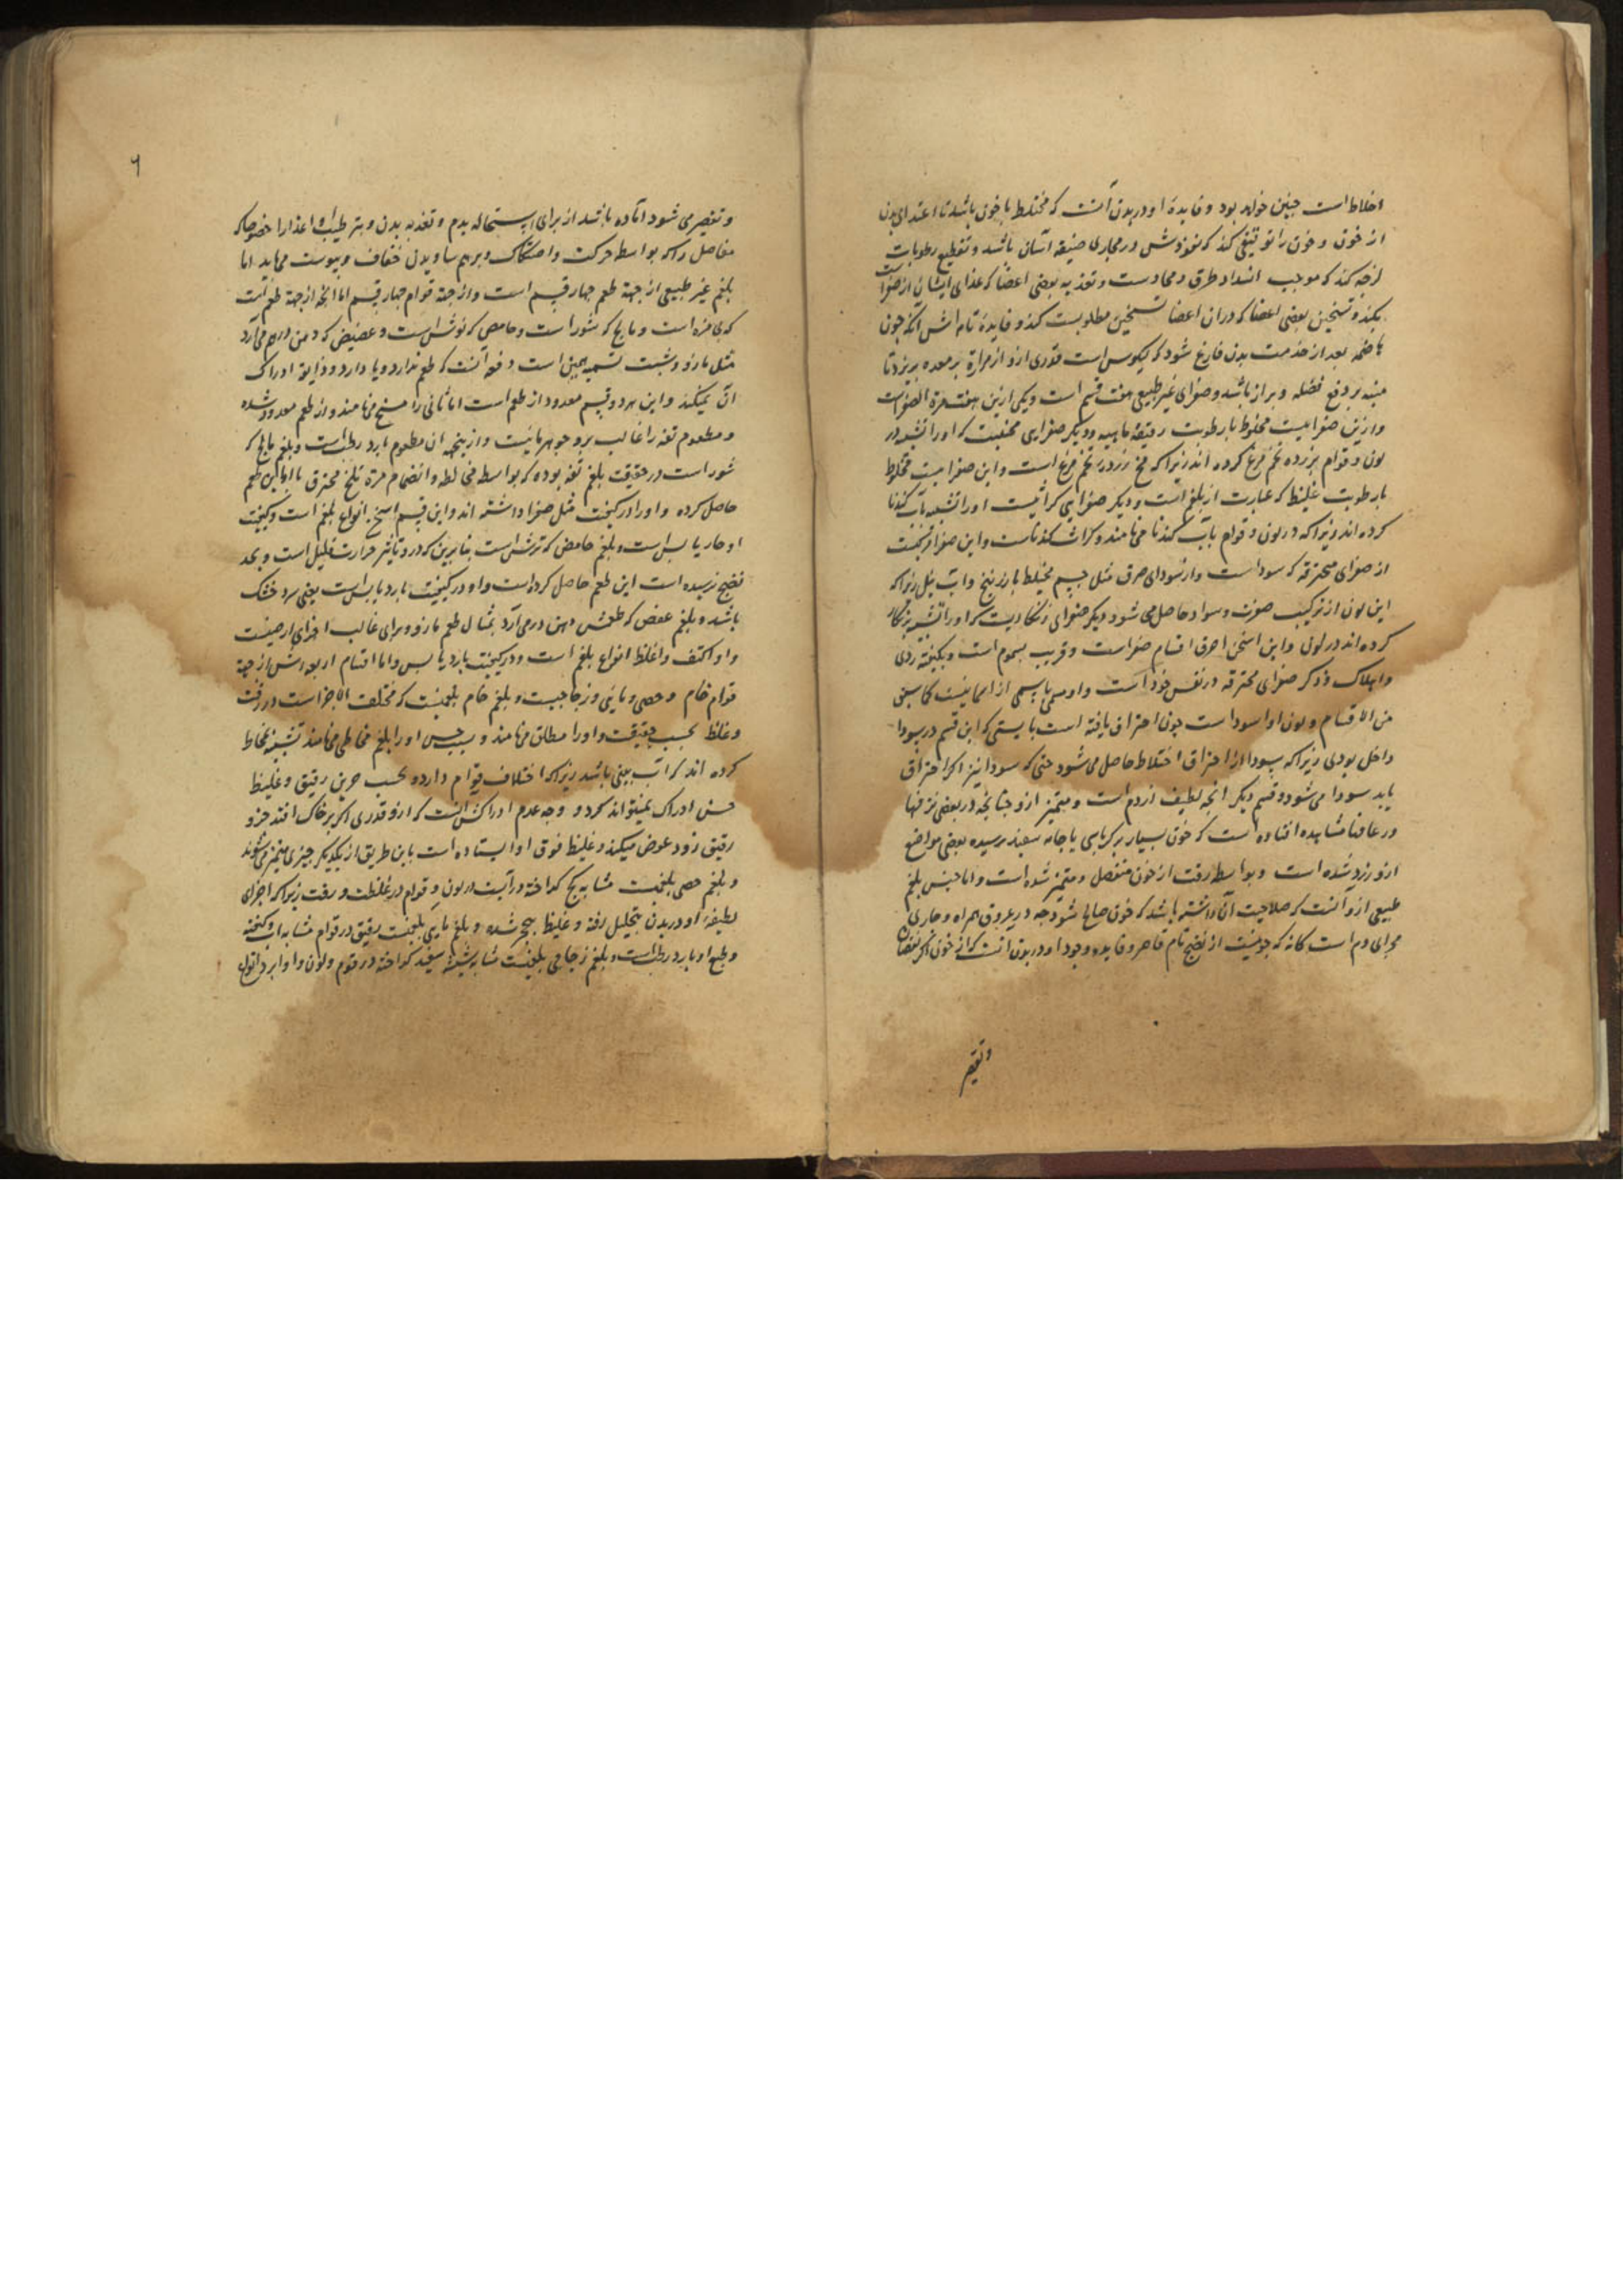 اخلاط است چنین خواهد بود و فایدهٔ او در بدن آنست که مختلط با خون باشد تا اغتذای بدن
از خون و خون را تو کند که نفوذش در مجاری ضیقه آسان باشد و تقطیع رطوبات
لزجه کند که موجب انسداد طرق و مجاریست و تغذیه بعضی اعضا که غذای ایشان از صفراست
بکند و تسخین بعضی اعضا که در آن اعضا تسخین مطلوبست کند و فایدهٔ تام اش آنکه چون
هاضمه بعد از خدمت بدن فارغ شود که کیلوس است قدری ازو از مراره بر معده بریزد تا
منبه بر دفع فضله و براز باشد و صفرای غیر طبیعی هفت قسم است و یکی ازین هفت مرة الصفراست
و ازین صفراییست مخلوط با رطوبت رقیقهٔ ماییه و دیگر صفرای محیست که او را تشبیه در
لون و قوام بزرده تخم مرغ کرده اند زیرا که مخ زرده تخم مرغ است و این صفراییست مخلوط
با رطوبت غلیظ که عبارت از بلغم است و دیگر صفرایی کراثیست او را تشبیه بآب کندنا
کرده اند زیرا که در لون و قوام بآب کندنا می‌ماند و کراث کندناست و این صفرا
از صفرای محترقه که سوداست و از سودای صرف مثل جسم مختلط با زرنیخ و آب نیل زیرا که
این لون از ترکیب صفرت و سواد حاصل می شود دیگر صفرای زنگاریست که او را تشبیه بزنگار
کرده اند در لون و این اسخن احرق اقسام صفراست و قریب بسموم است و بکیفیة ردی
و اهلاک و دیگر صفرای محترقه در نفس خود است و او مسمی باسمی از اسما نیست کما سبق
من الاقسام و لون او اسودا است چون احتراق یافته است بایستی که این قسم در سودا
داخل بودی زیرا که سودا از احتراق اخلاط حاصل می شود حتی که سودا نیز اگر احتراق
یابد سودا می شود و قسم دیگر آنچه لطیف از دم است و متمیز ازو چنانچه در بعضی
در عافنا مشاهده افتاده است که خون بسیار بر کرباسی یا جامه سفید رسیده بعضی مواضع
ازو زرد شده است و بواسطه رقت از خون منفصل و متمیز شده است و اما جنس بلغم
طبیعی ازو آنست که صلاحیت آن داشته باشد که خون صالح شود چه در عروق همراه و جاری
مجرای دم است کانه که خونیست از نضج تام قاصر و فایده وجود او در بدن آنست که اگر خون نقصان
و تقصیر
۶
و تقصیر می شود آماده باشد از برای استحاله بدم و تغذیه بدن و ترطیب اعضا را خصوصا که
مفاصل را که بواسطه حرکت و اصطکاک و برهم ساویدن خفاف و یبوست می یابد اما
بلغم غیر طبیعی از جهة طعم چهار قسم است و از جهة قوام چهار قسم اما آنچه از جهة طعم است
که بی مزه است و مالح که شور است و حامض که ترش است و عفص که دهن درهم می آرد
مثل مازو و شبت تسمیه همین است و تفه آنست که طعم ندارد و یا دارد و ذایقه ادراک
آن نمیکند و این هر دو قسم معدود از طعم است اما ثانی را مسیخ می‌نامند و از طعم معدود شده
و مطعوم تفه را غالب برو جوهر ماییت و ازینجهه آن مطعوم بارد رطب است و بلغم مالح که
شور است در حقیقت بلغم تفه بوده که بواسطه مخالطه و انضمام مرة تلخ محترق با او این طعم
حاصل کرده و او را در کیفیت مثل صفرا داشته اند و این قسم اسخن انواع بلغم است و کیفیت
او حار یابس است و بلغم حامض که ترش است بنابرین که درو تأثیر حرارت قلیل است و بحد
نضج نرسیده است این طعم حاصل کرده است و او در کیفیت بارد یابس است یعنی سرد خشک
باشد و بلغم عفص که طعمش دهن درهم آرد بمثال طعم مازو و برای غالب اجزای ارضیست
و او اکثف و اغلظ انواع بلغم است و در کیفیت بارد یابس و اما اقسام اربعه اش از جهة
قوام خام و جصی و مایی و زجاجیست و بلغم خام بلغمیست که مختلف الاجزاست در رقت
و غلظ بحسب حقیقت و او را مطلق می‌نامند و بسبب حس او را بلغم مخاطی می‌نامند تشبیه بمخاط
کرده اند که آب بینی باشد زیرا که اختلاف قوام دارد و بحسب حس رقیق و غلیظ
حس ادراک نمیتواند کرد و وجه عدم ادراکش آنست که ازو قدری اگر بر خاک افتد جزو
رقیق زود غوص میکند و غلیظ فوق او ایستاده است باین طریق از یکدیگر چیزی متمیز می‌شوند
و بلغم جصی بلغمیست مشابه کچ کداخته در آب در لون و قوام در غلظت و رقت زیرا که اجزای
لطیفهٔ او در بدن بتحلیل رفته و غلیظ شده و بلغم مایی بلغمیست رقیق در قوام مشابه آب و کیفیة
و طبع او بارد رطب است و بلغم زجاجی بلغمیست مشابه شیشهٔ سفید کداخته در قوام و لون و او ابرد انواع